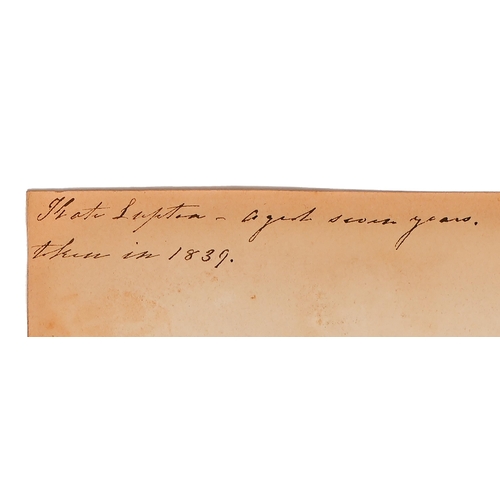 Kate Lupton – aged seven years.
taken in 1839.